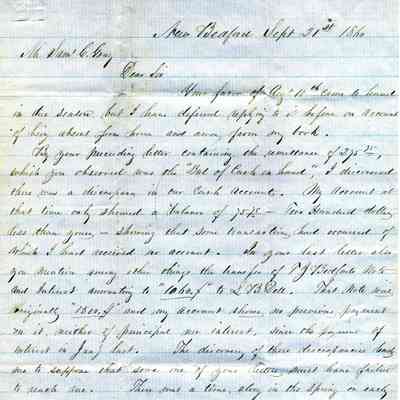 New Bedford Sept 21st 1860
Mr. Saml C. Gray
Dear Sir
Your favor of Augt 11th came to hand
in due season, but I have deferred replying to it before on account
of being absent from home and away from my book.
By your preceding letter containing the remittance of 275
which you observed was the "Bal of Cash on hand", I discovered
there was a discrepancy in our Cash accounts. My account at
that time only showed a balance of 75 Two Hundred dollars
less than yours, showing that some transaction had occurred of
which I had received no account. In your last letter also
you mention among other things the transfer of Note
and Interest amounting to "1060" to L B Dell. That Note was
originally "1800" and my account shows no previous payment
on it, neither of principal nor interest, since the payment of
interest in Jany last. The discovery of these discrepancies leads
me to suppose that some one of your letters must have failed
to reach me. There was a time, along in the spring or early